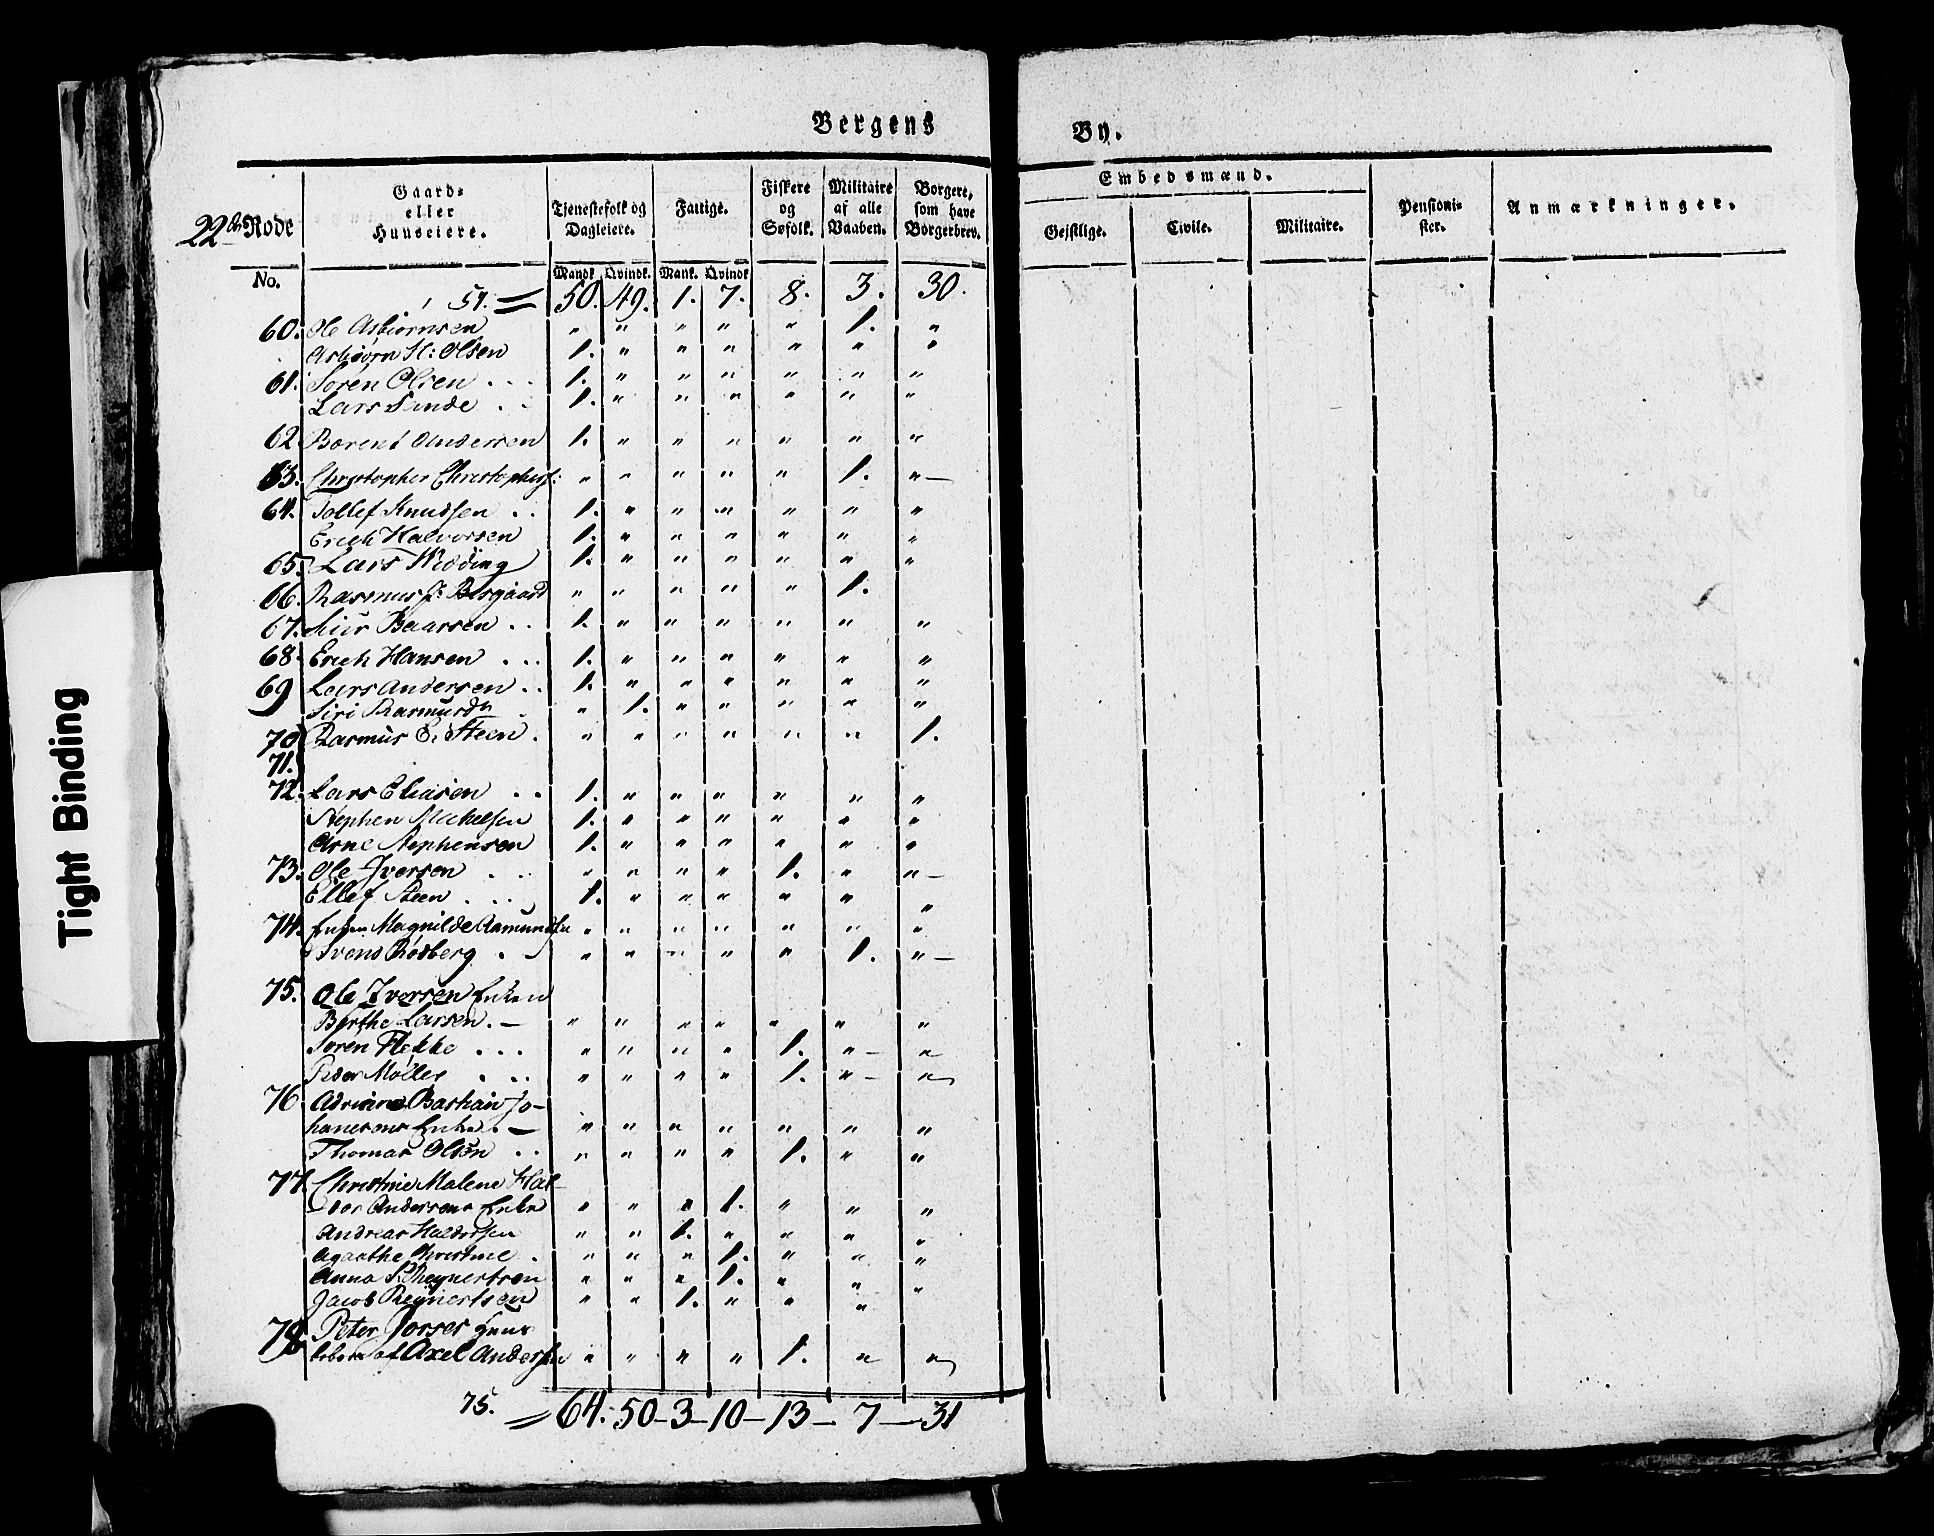 Tight Binding
Bergens By.
22de Rode
Gaard- eller Huuseiere.
Tjenestefolk og Dagleiere.
Fattige.
Fiskere og Søfolk.
Militaire af alle Vaaben.
Borgere, som have Borgerbrev.
Embedsmænd.
Gejstlige.
Civile.
Militaire.
Pensionister.
Anmærkninger.
No.
Mandk. Qvindk. Mank. Qvindk.
50. 49. 1. 7. 8. 3. 30.
60. Ole Asbiornsen " " " " " 1. "
Asbiorn H: Olsen 1. " " " " " "
61. Soren Olsen . . . 1. " " " " " "
Lars Sunde . . 1. " " " " " "
62 Berent Andersen 1. " " " " " "
63. Christopher Christophers: " " " " " 1. " —
64. Tollef Knudsen . . 1. " " " " " "
Erich Halvorsen 1. " " " " " "
65. Lars Widding 1. " " " " " "
66. Rasmus J: " " " " " 1.
67. Baarsen . . 1. " " " " " "
68. Erich Hansen . . . 1. " " " " " "
69 Lars Andersen . . 1. " " " " " "
Siri Rasmusd. . " 1. " " " " "
70 Rasmus E. Steen . " " " " " " 1.
71.
72. Lars Eliasen . . 1. " " " " " "
Stephen Mickelsen 1. " " " " " "
Arne Stephensen 1. " " " " " "
73. Ole Iversen . . . " " " " 1. " " —
Ellef Steen . . . 1. " " " " " "
74. Enken Magnilde Aamundsen " " " " " " "
Svend Rodberg . . " " " " " 1. " —
75. Ole Iversen Enken
Berthe Larsen. — " " " " " " "
Soren Flekke . . . " " " " 1. " — "
Peder Möller . . . " " " " 1. " — "
76. Adriane Bastian Jo-
hanesens Enke. — " " " " " " "
Thomas Olsen . . " " " " 1. " "
77. Christine Malene Hal-
vor Andersens Enke " " " 1. " " "
Andreas Haldorsen " " 1. " " " "
Agaathe Christine . " " " 1. " " "
Anna S. Reynertsen " " " 1. " " "
Jacob Reynertsen " " 1. " " " "
78. Peter
af Axel Andersen " " " " 1. " "
75. = 64. 50 — 3 — 10 — 13 — 7 — 31